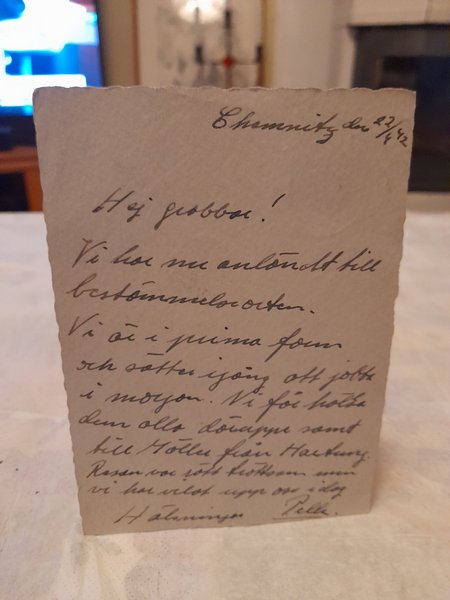 Chemnitz den 22/4 42
Hej grabbar!
Vi har nu anlöndt till
bestämmelseorten.
Vi är i prima form
och sätter igång att jobba
i morgon. Vi får hälsa
dem alla däruppe samt
till Möller från Hartung.
Resan var rätt tröttsam men
vi har vilat upp oss i dag
Hälsningar Pelle.